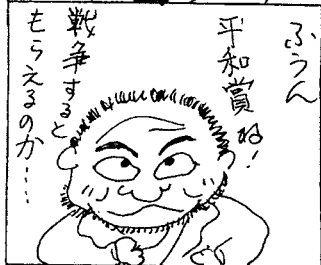 ふうん
平和賞ね!
戦争すると
もらえるのか‥‥